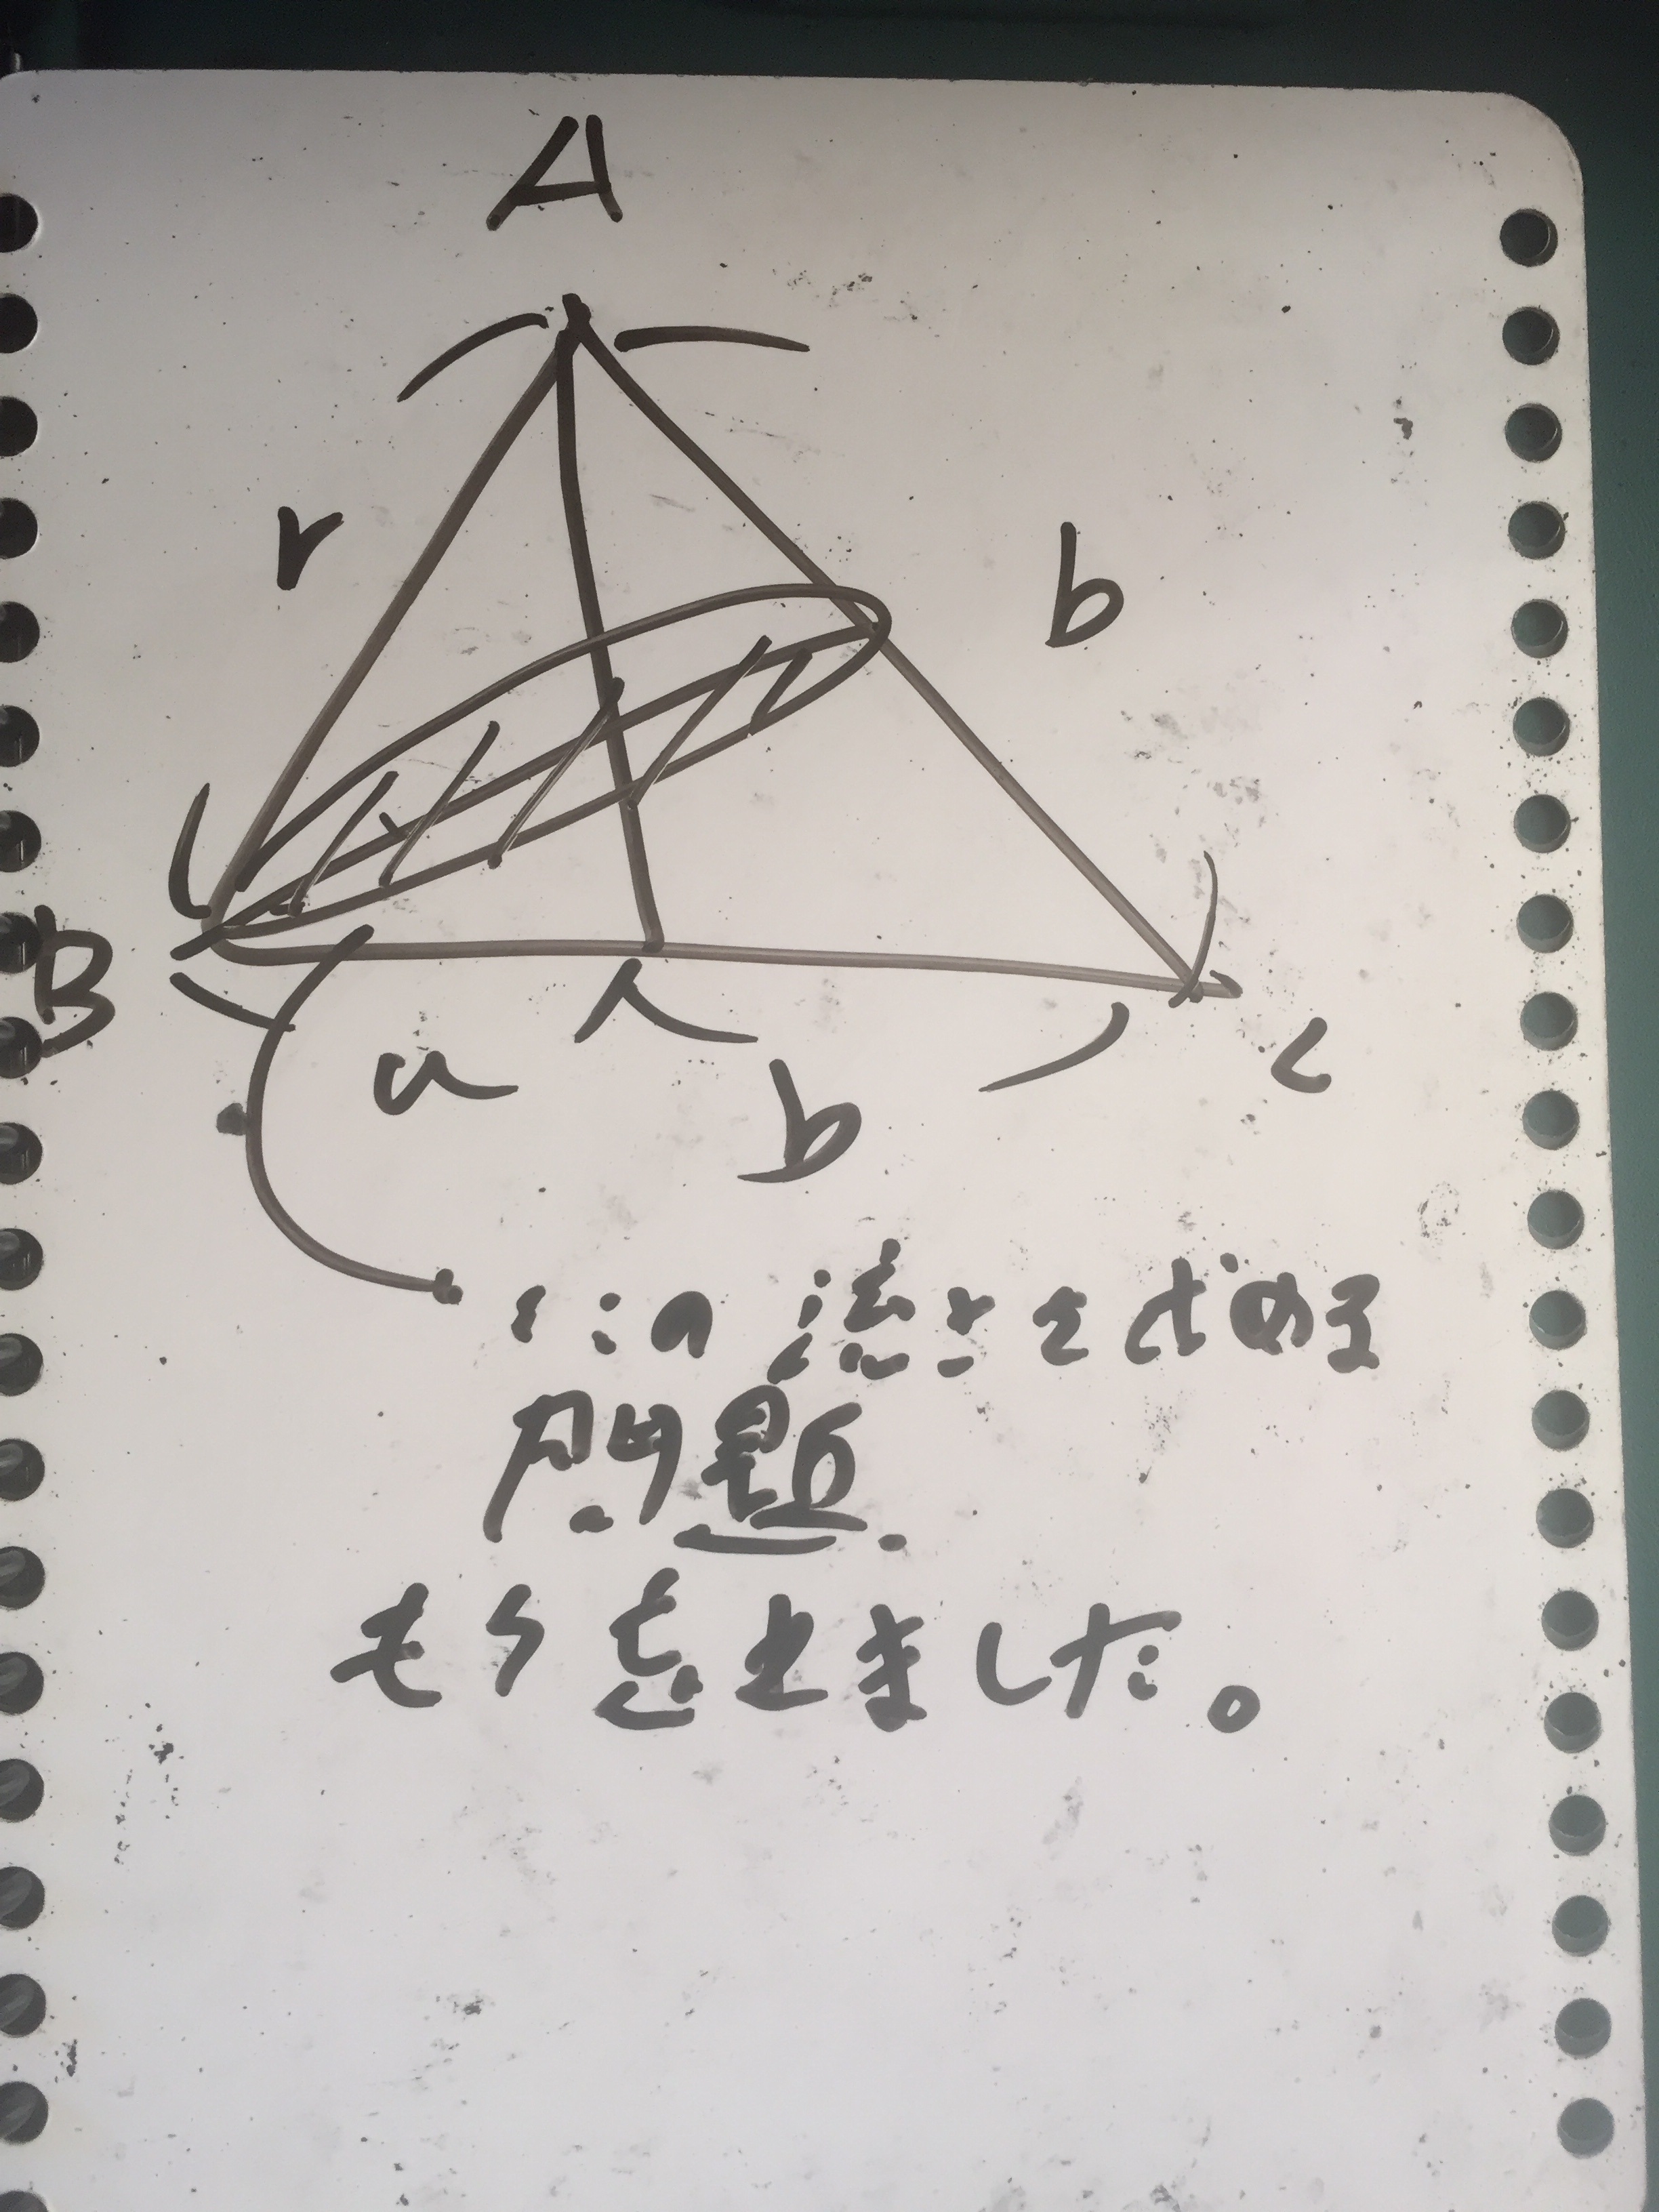 A
r
b
B
a
b
C
ここの流さを求める
問題.
もう忘れました。